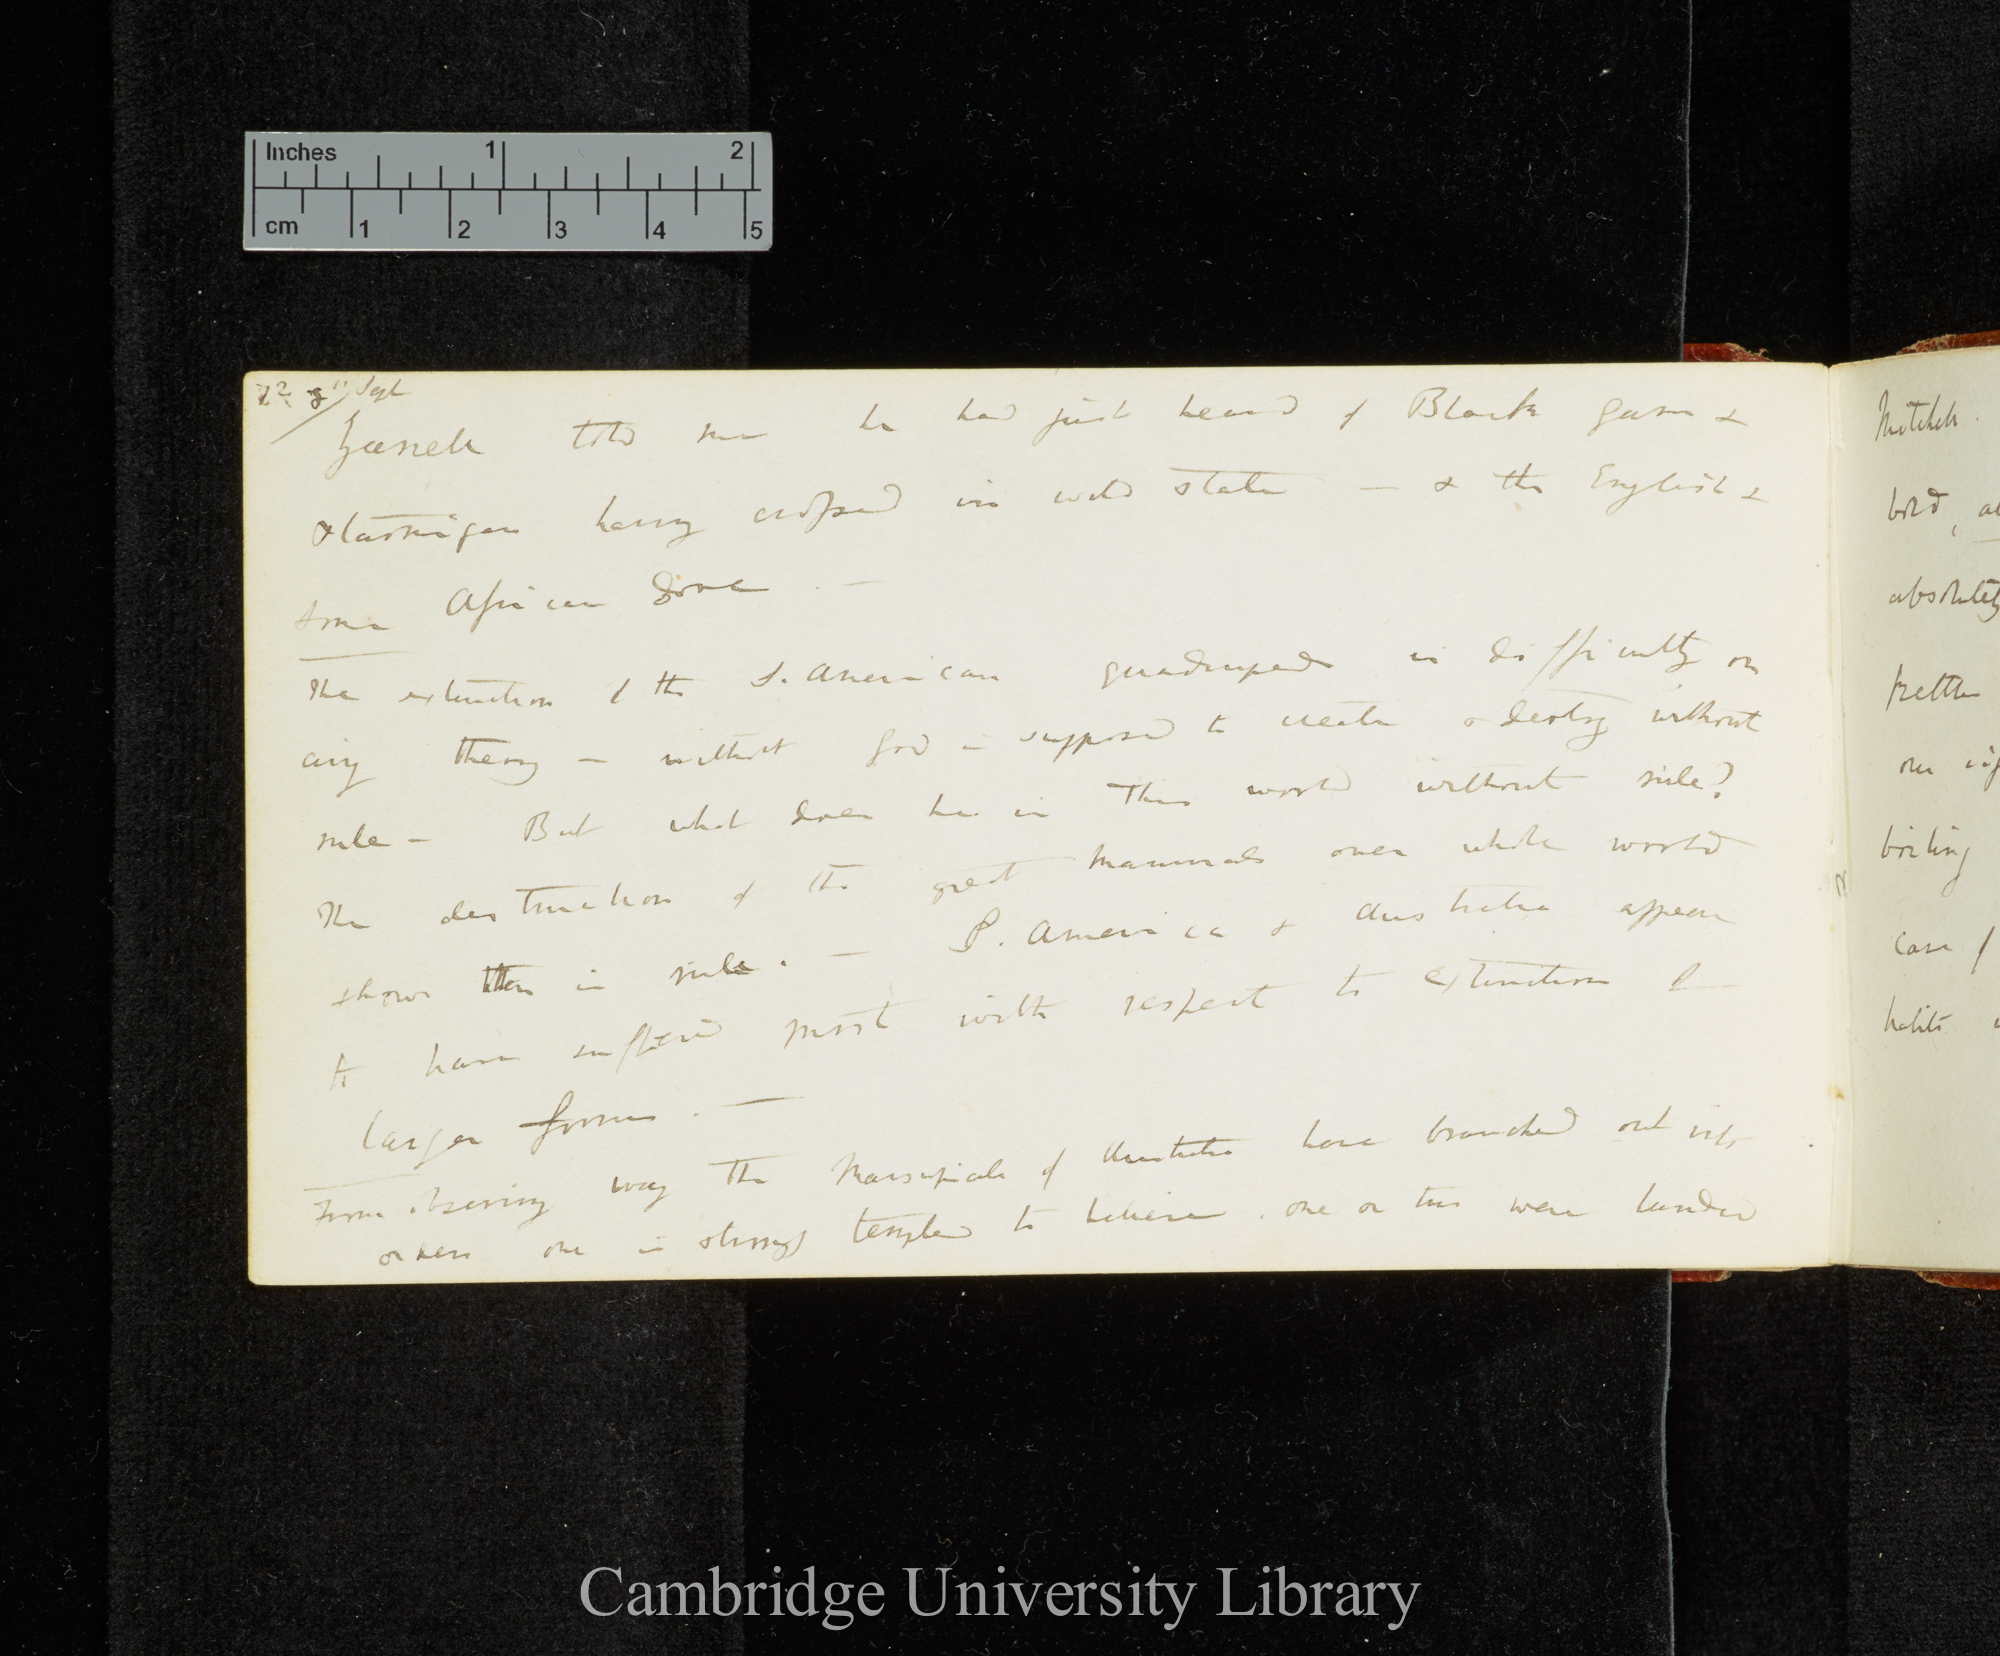 Inches 1 2
cm 1 2 3 4 5
Sept
Yarrell told me he had just heard of Black game &
Ptarmigan having crossed in wild state — & the English &
some African Dove. —
The extinction of the S. American quadrupeds is difficulty on
any theory — without God is supposed to create & destroy without
rule — But what does he in this world without rule?
The destruction of the great Mammals over whole world
shows there is rule. — S. America & Australia appear
to have suffered most with respect to extinction of
larger forms. —
From observing way the Marsupials of Australia have branched out into
orders one is strongly tempted to believe one or two were landed
Mitchell
bold,
absolutely
kettle
boiling
case of
habits
Cambridge University Library